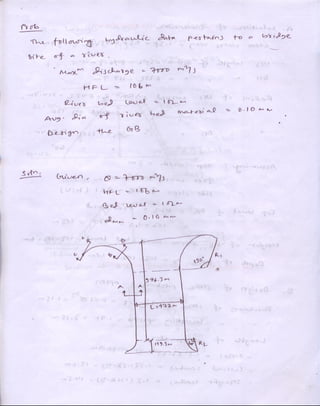 Prob
The following hydraulic data pertains to a bridge
site of a river
Maxm discharge = 7000 m³/s
HFL = 106 m
River bed level = 102 m
Avg. dia of river bed material = 0.10 mm
Design the GB
Soln,
Given, Q = 7000 m³/s
HFL =
Bed level = 102 m
= 0.10 mm
R1
A A
L=
R2